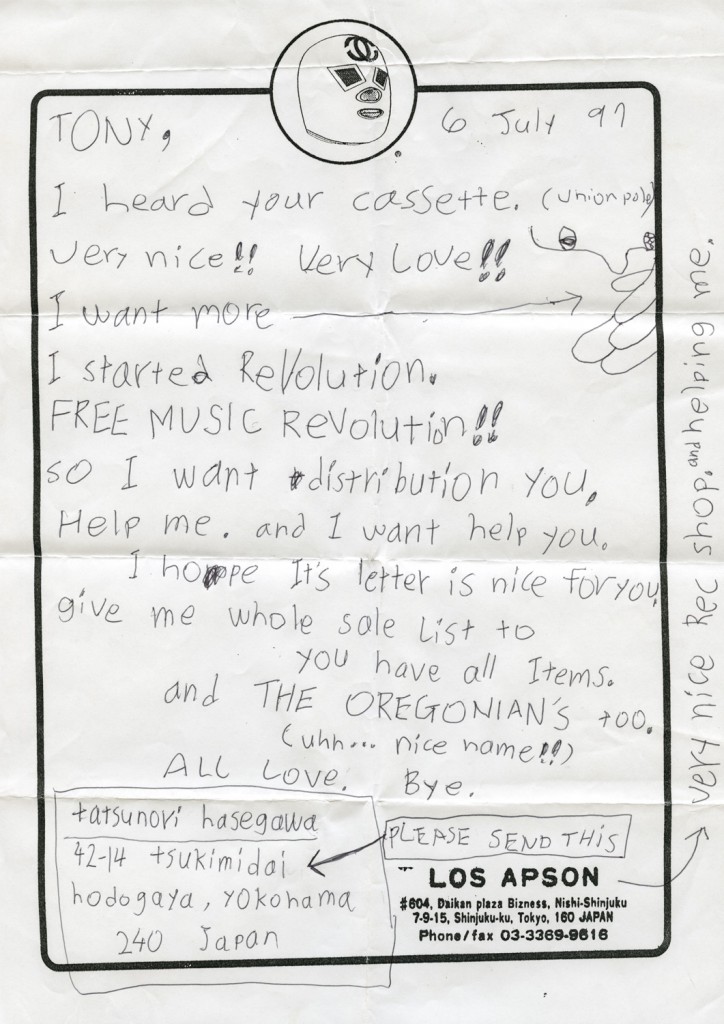 TONY,
6 July 97
I heard your cassette. (union pole)
very nice!! Very Love!!
I want more
I started Revolution.
FREE MUSIC Revolution!!
so I want distribution you.
Help me. and I want help you.
I hope It's letter is nice for you
give me whole sale List to
you have all Items.
and THE OREGONIAN'S too.
(uhh... nice name!!)
ALL LOVE. Bye.
tatsunori hasegawa
42-14 tsukimidai
hodogaya, yokohama
240 Japan
PLEASE SEND THIS
LOS APSON
#604, Daikan plaza Bizness, Nishi-Shinjuku
7-9-15, Shinjuku-ku, Tokyo, 160 JAPAN
Phone/fax 03-3369-9616
very nice Rec shop. and helping me.